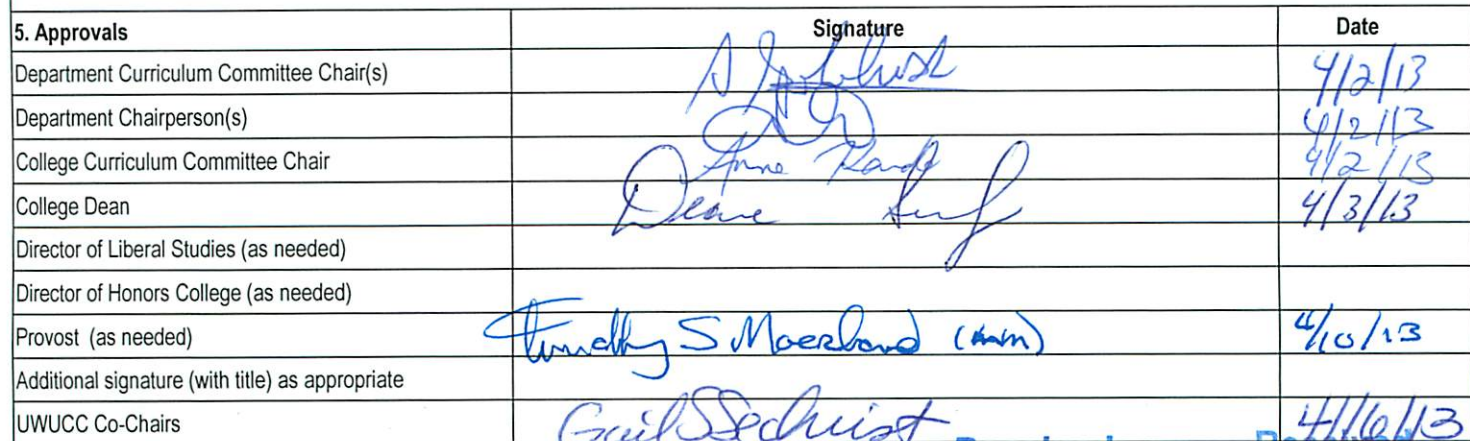 5. Approvals Signature Date
Department Curriculum Committee Chair(s) 4/2/13
Department Chairperson(s) 4/2/13
College Curriculum Committee Chair Anne 4/2/13
College Dean Deane 4/3/13
Director of Liberal Studies (as needed)
Director of Honors College (as needed)
Provost (as needed) Timothy S Moerland 4/10/13
Additional signature (with title) as appropriate
UWUCC Co-Chairs Gail S Sechrist 4/16/13